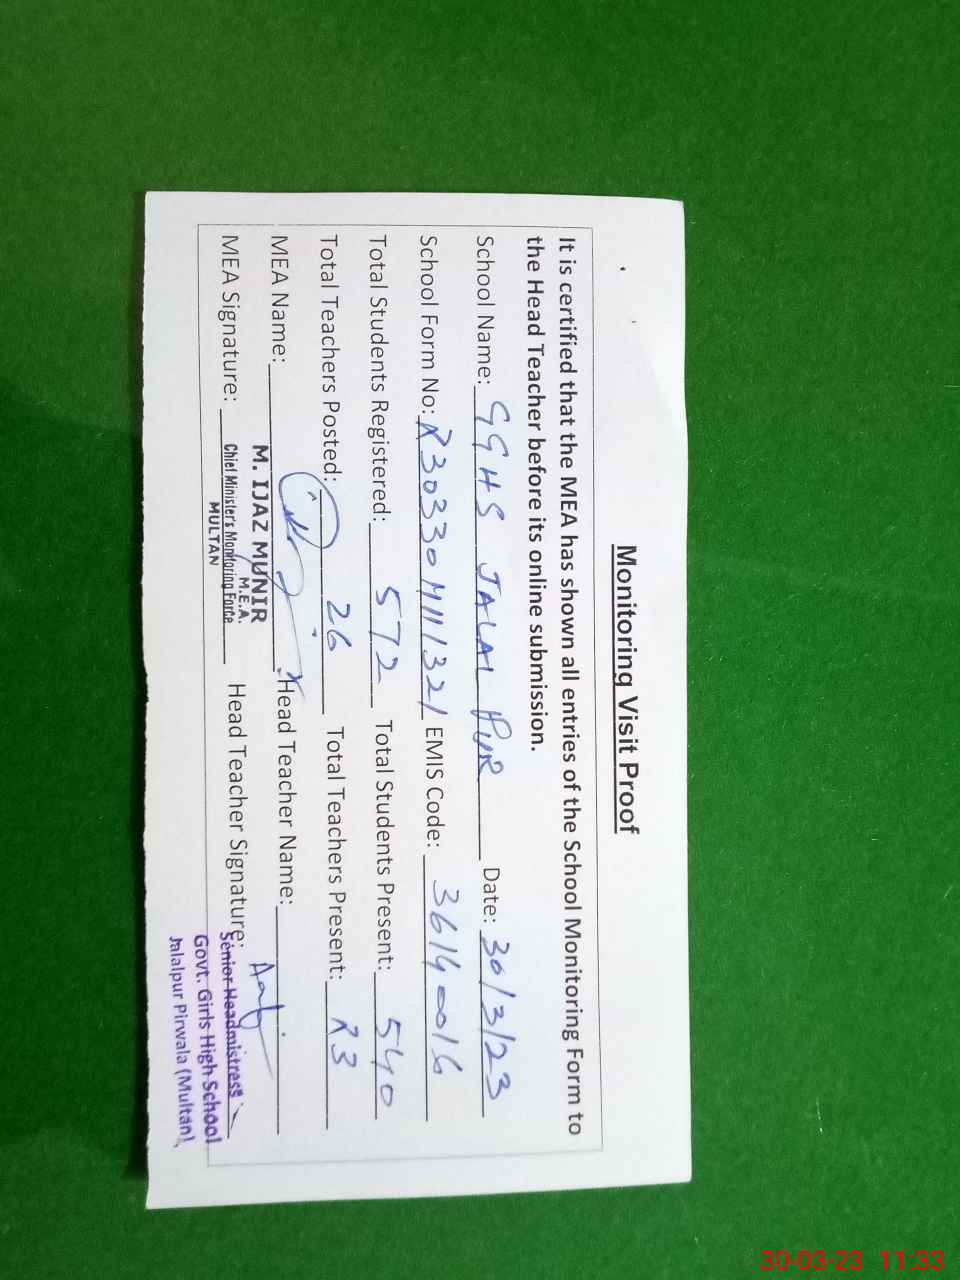 Monitoring Visit Proof
It is certified that the MEA has shown all entries of the School Monitoring Form to
the Head Teacher before its online submission.
School Name: GGHS JALAL PUR Date: 30/3/23
School Form No: R30330M111321 EMIS Code: 36140016
Total Students Registered: 572 Total Students Present: 540
Total Teachers Posted: 26 Total Teachers Present: 23
MEA Name: Head Teacher Name:
M. IJAZ MUNIR
M.E.A.
MEA Signature: Chief Minister's Monitoring Force Head Teacher Signature:
MULTAN
Senior Headmistress
Govt. Girls High School
Jalalpur Pirwala (Multan)
30-03-23 11:33